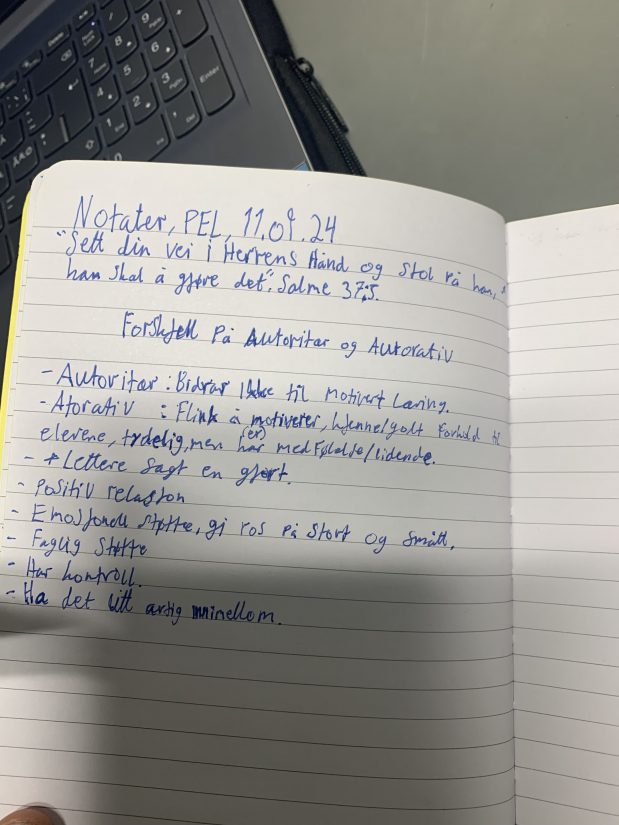 Notater, PEL, 11.09.24
"Sett din vei i Herrens Hånd og stol på han,
han skal å gjøre det". Salme 37:5.
Forskjell på Autoritær og Autorativ
- Autoritær : Bidrar Ikke til motivert Læring.
- Atorativ : Flink å motiverer, kjenne/godt forhold til
elevene, tydelig, men har (er) medFølelse/lidende.
- * Lettere sagt en gjort.
- Positiv relasjon
- Emosjonell støtte, gi ros på stort og smått,
- Faglig støtte
- Har kontroll.
- Ha det litt artig innimellom.
Enter